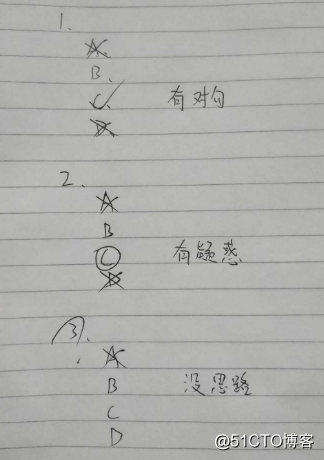 1.
A.
B.
C.
有对勾
D
2.
A
B
C
有疑惑
D
3.
A
B
没思路
C
D
@51CTO博客